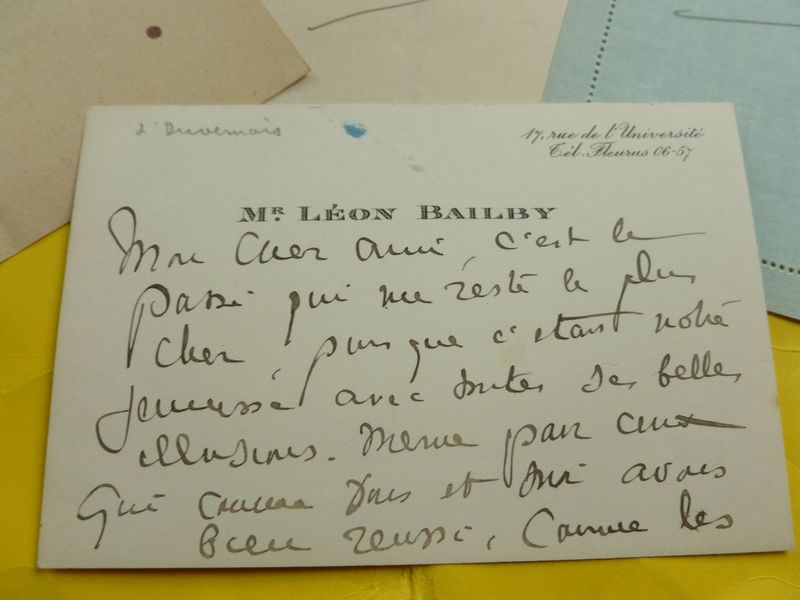 17, rue de l'Université
Tél. Fleurus 06-57
MR. LÉON BAILBY
Mon cher ami, c'est le
passé qui me reste le plus
cher, puisque c'etait notre
jeunesse avec toutes ses belles
illusions. Même pour ceux
qui comme vous et moi avons
bien reussi, comme les